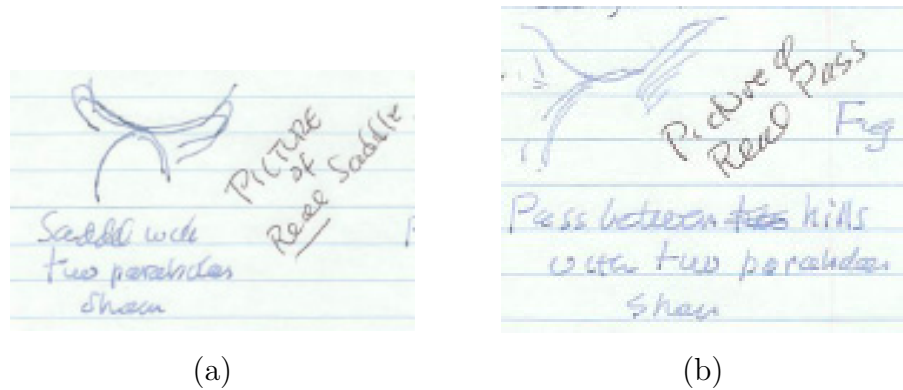 PICTURE
of
Real Saddle
Saddle with
two parabolas
shown
(a)
Picture of
Real Pass
Fig
Pass between hills
with two parabolas
shown
(b)